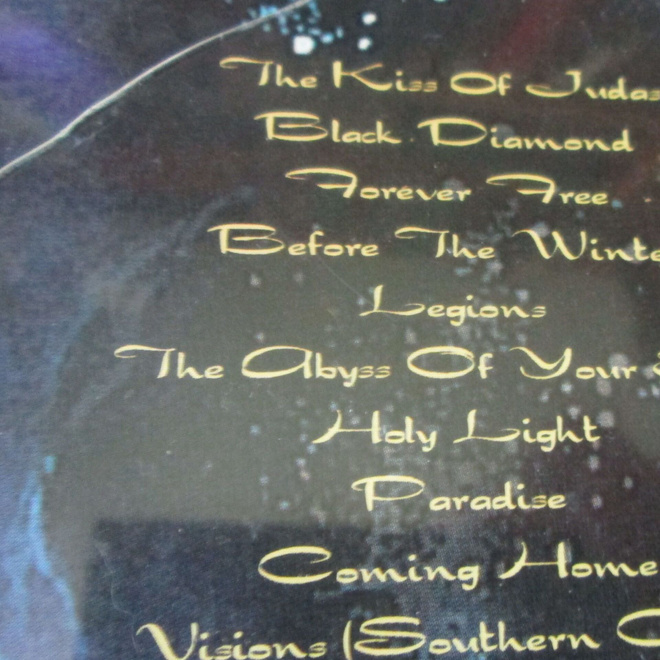 The Kiss Of Judas
Black Diamond
Forever Free
Before The Winte
Legions
The Abyss Of Your
Holy Light
Paradise
Coming Home
Visions (Southern